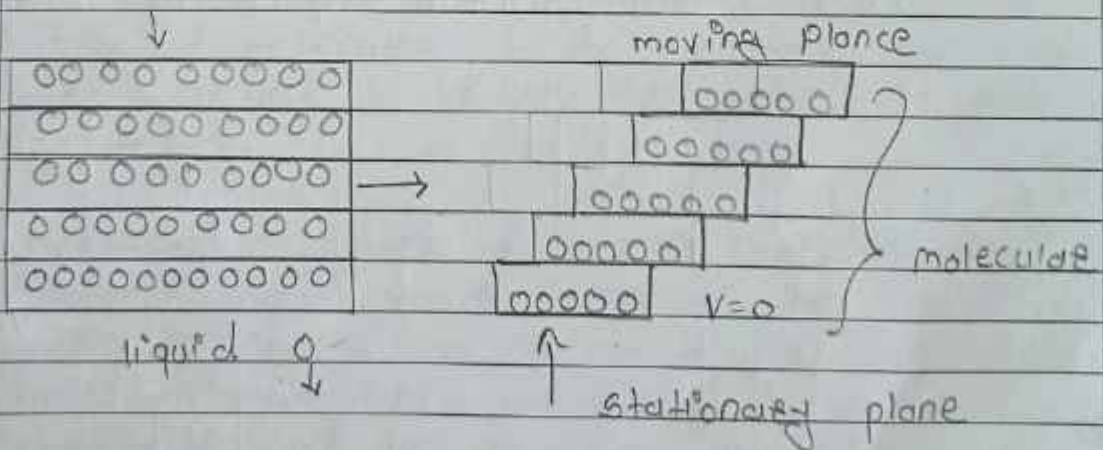 moving plance
moleculae
V=0
liquid
stationary plane